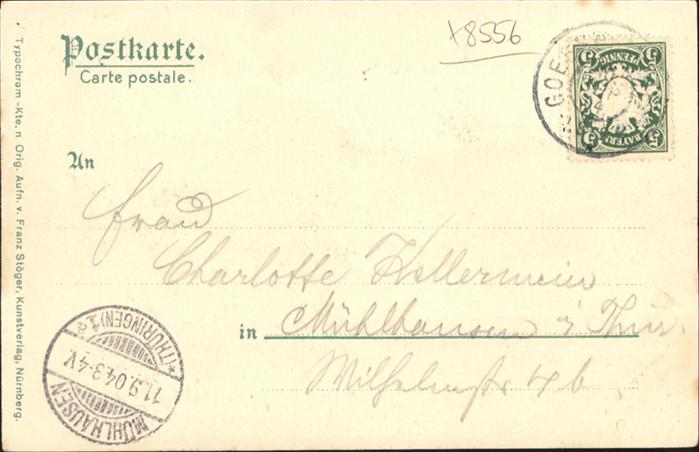 Postkarte.
Carte postale.
+8556
5 5
PFENNIG
BAYERN
5 5
GOE
An
Frau
Charlotte Kellermein
in Mühlhausen i. Thür.
Wilhelmstr 4b
MÜHLHAUSEN
11.9.04.3-4V.
*(THÜRINGEN)1a
Typochrom-Kte. n. Orig. Aufn. v. Franz Stöger, Kunstverlag, Nürnberg.